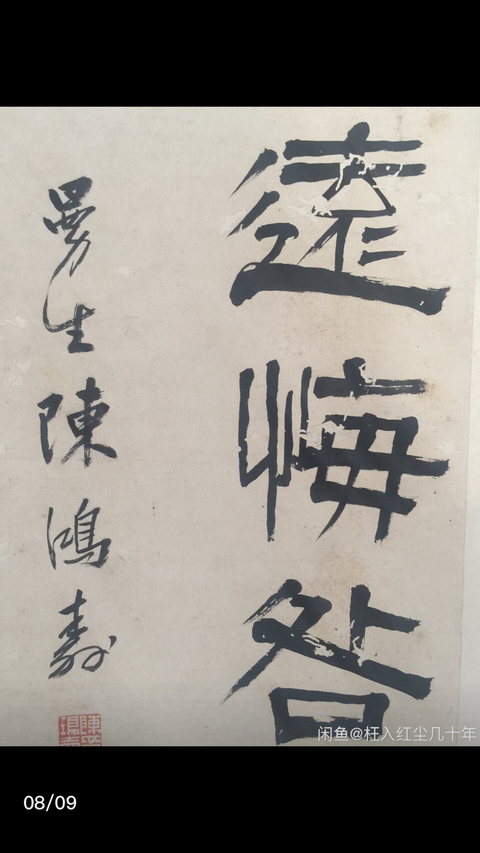 遠悔咎
曼生陳鴻壽
闲鱼@枉入红尘几十年
08/09